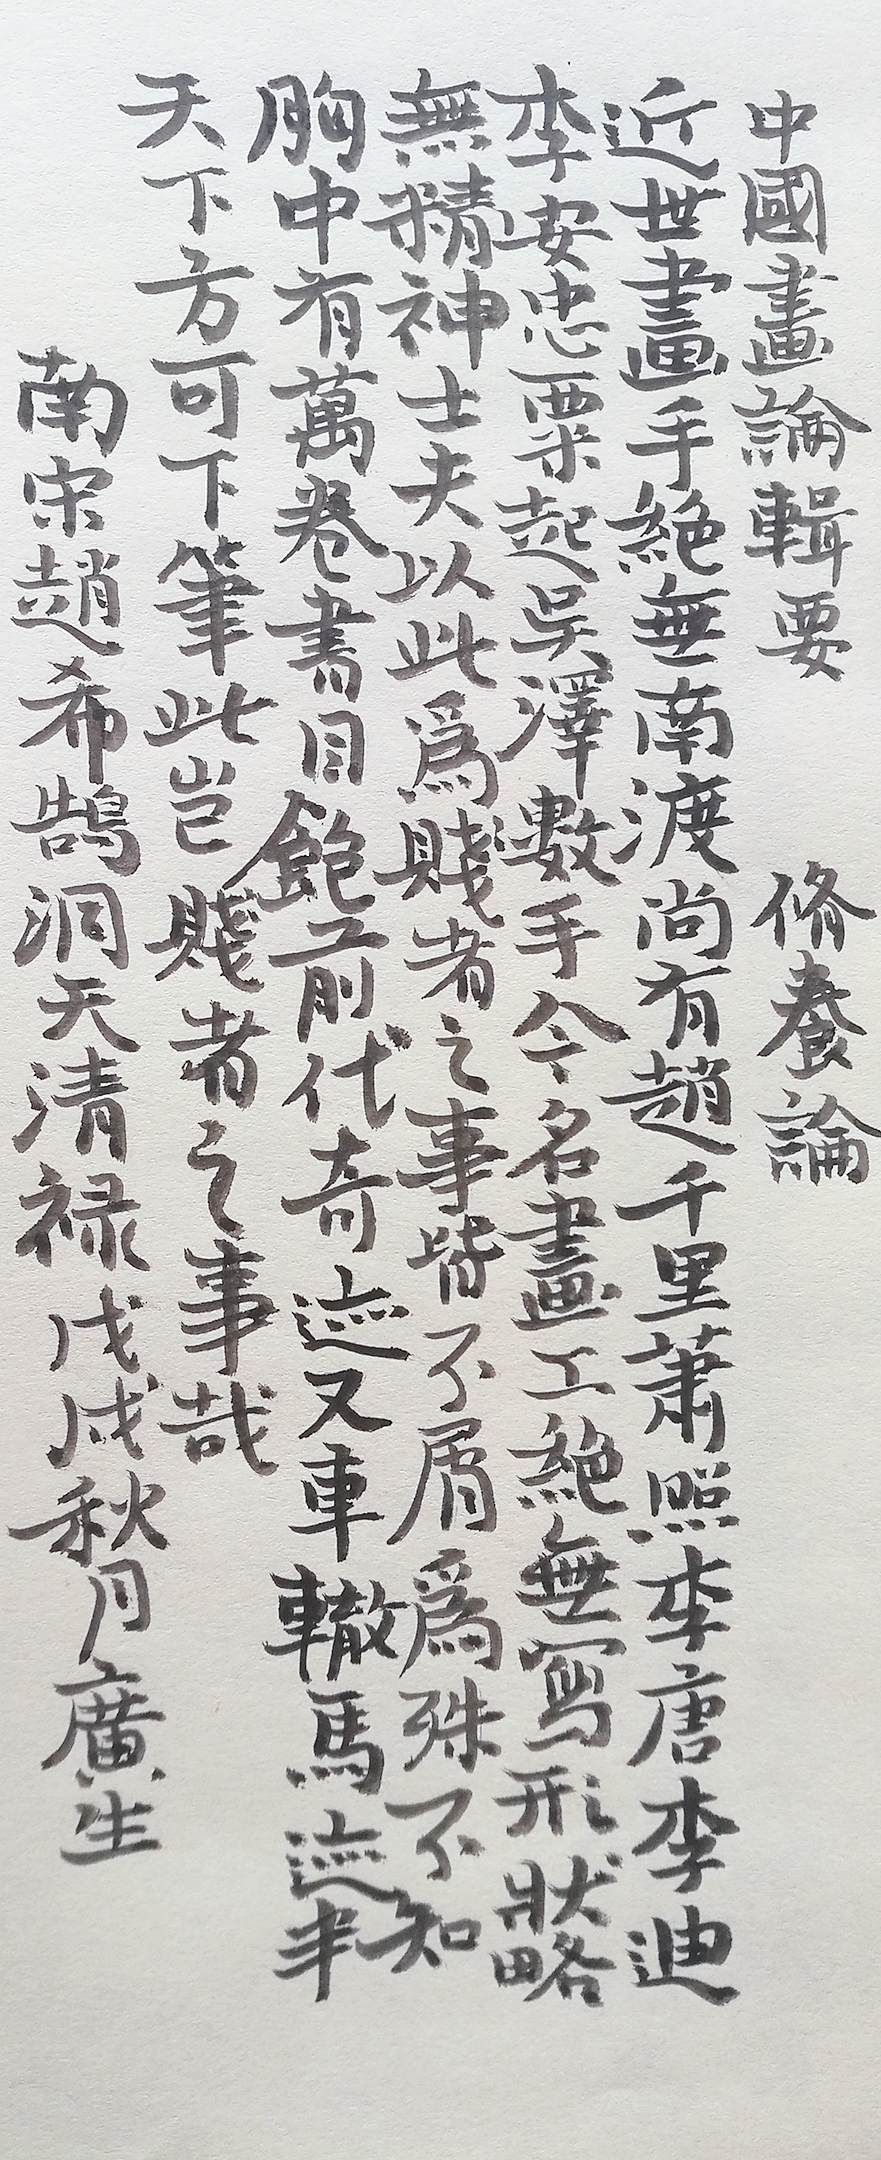 中國畫論輯要 脩養論
近世畫手絕無南渡尚有趙千里蕭照李唐李迪
李安忠粟起吳澤數手今名畫工絕無寫形狀略
無精神士夫以此爲賤者之事皆不屑爲殊不知
胸中有萬卷書目飽前代奇迹又車轍馬迹半
天下方可下筆此豈賤者之事哉
南宋趙希鵠洞天清禄戊戌秋月廣生